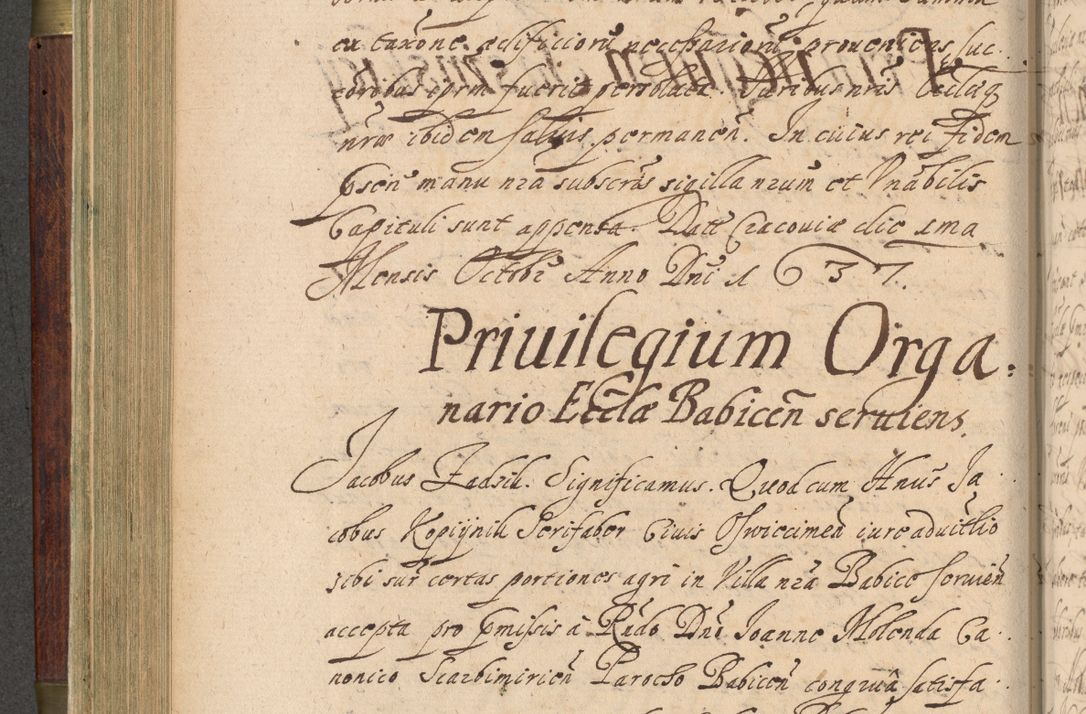 ex taxõne ædificiorũ necessarior̃ prouenien̄ suc
corobus eorm fuerit persoluta. Juribus nr̃is Ecclīæq
nr̃æ ibidem saluis permanen̄. In cuius rei fidem
p̄sen̄ manu nr̃a subscr̃is sigilla nr̃um et Vnãbilis
Capituli sunt appensa. Datt Cracouiæ die 1ma
Mensis Octobr̃ Anno Dn̄i 1637.
Priuilegium Orga:
nario Eccl̃æ Babicen̄ seruiens.
Jacobus Zadsik. Significamus. Quod cum Hn̄us Ja
cobus Kopijnik Serifaber Ciuis Oswiecimen̄ iure aduitlio
sibi sur̃ certas portiones agri in Villa nr̃a Babice seruien̄
accepta pro p̄missis à Rn̄do Dn̄o Joanne Molenda Ca
nonico Scarbimirien̄ Parocho Babicen̄ congruâ satisfa